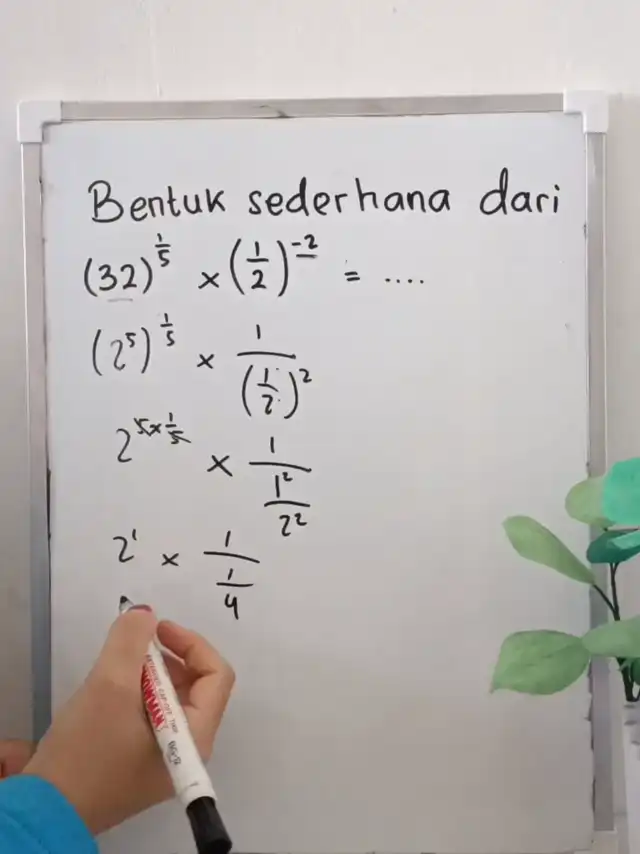 Bentuk sederhana dari
(32)^(1/5) × (1/2)^(-2) = ....
(2^5)^(1/5) × 1/(1/2)^2
2^(5×1/5) × 1/(1^2/2^2)
2^1 × 1/(1/4)
SNOWMAN